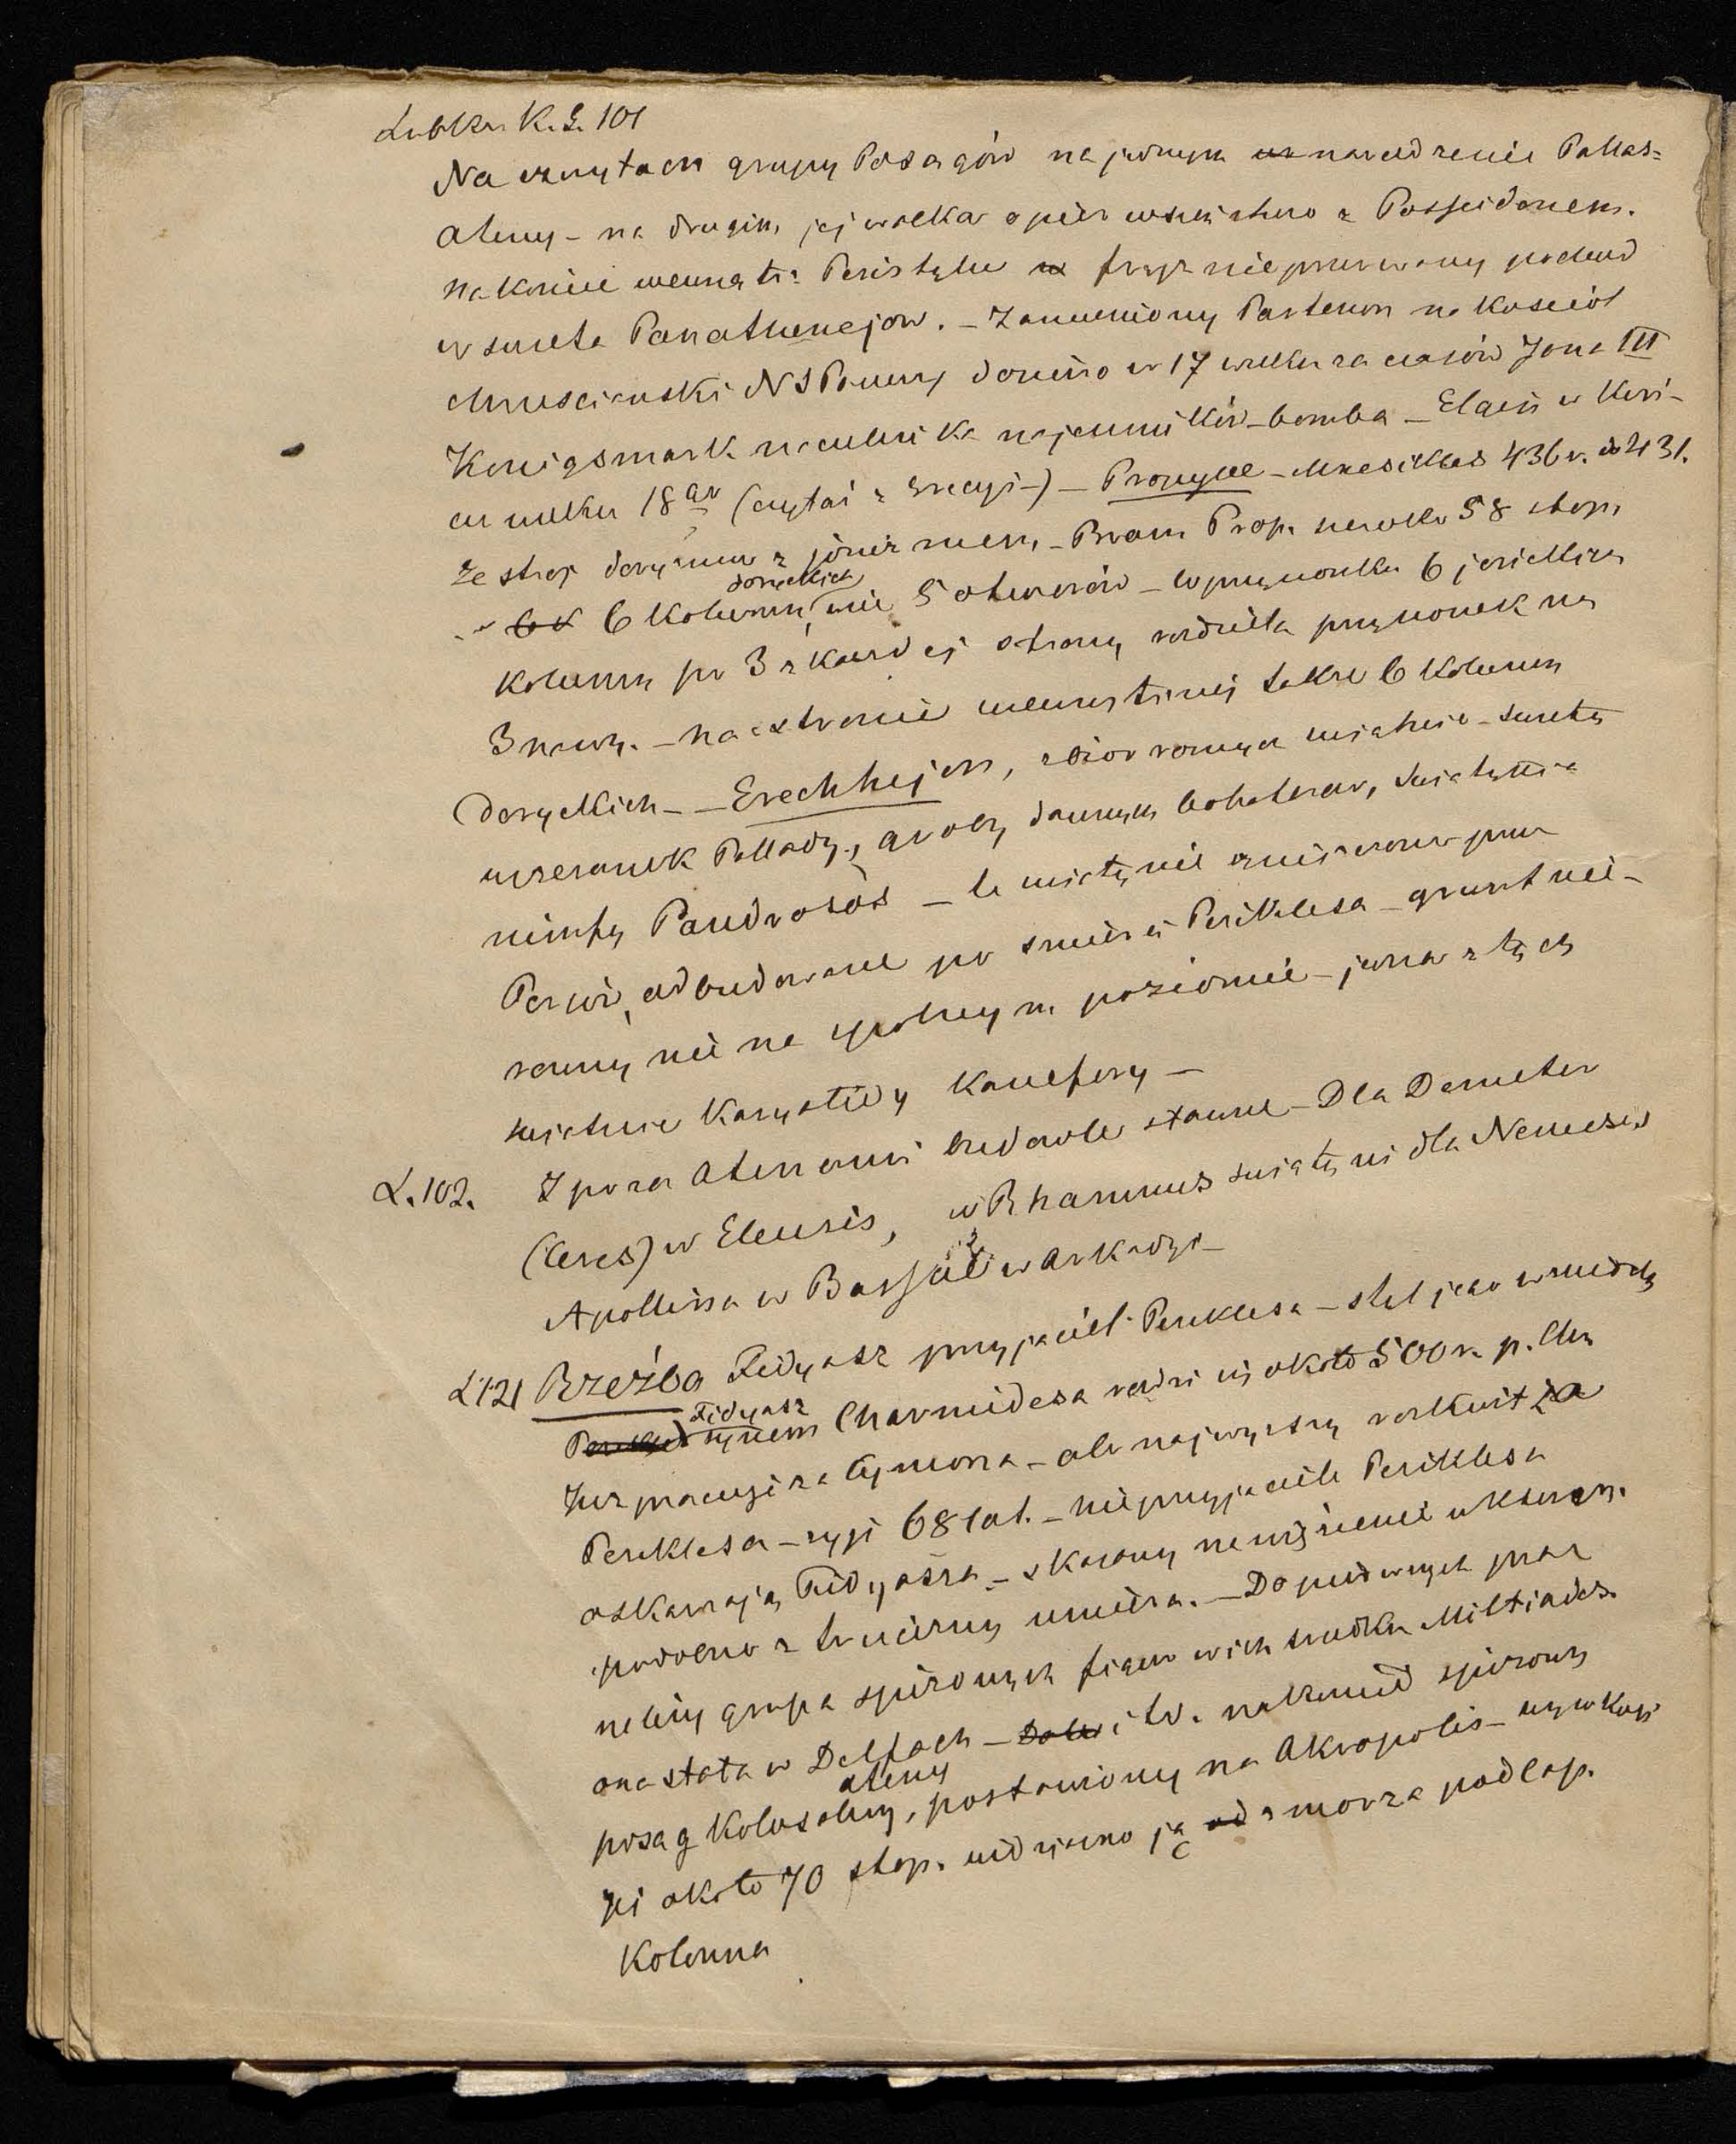 Lubker K. S. 101
Na szczytach grupy Posągów na jednym narodzenie Pallas-
Ateny - na drugim jej walka o pierwszeństwo z Posseidonem.
Nakoniec wewnątrz Peristylu fryz nieprzerwany pochód
w święta Panathenejow. - Zamieniony Partenon na kościoł
chrześcianski N S Panny doniero w 17 wieku za czasów Jana III
Konigsmark naczelnika najemników - bomba - Elgin w Kori-
cu wieku 18go (czytaj z Grecyi -) - Propylee - Mnesikles 436 r. do 431.
Zestrój dorycznem z jonizmem, - Bram. Prop. szeroka 58 stop,
6 Kolumn doryckich, 5 otworów - w przysionku 6 jonickich
kolumn po 3 z każdej strony rozdziela przysionek na
3 nawy. - na stronie wewnętrznej także 6 Kolumn
doryckich - - Erechtejon, zbiór rozmych świątnic - święty
wizerunek Pallady, groby dawnych bohaterów, świątynia
nimfy Pandrosos - te świątynie zniszczone przez
Persów, odbudowane po śmierci Periklesa - grunt nie-
równy nie na spólnym poziomie - jedna z tych
świątnic Karyatidy Kanefory -
L. 102. Z poza Atenami budowle sławne - Dla Demeter
(Ceres) w Eleusis, w Rhamnus świątyni dla Nemesis
Apollina w Bassae w Arkadyi -
L 121 Rzeźba Fidyasz przyjaciel Periklesa - stal jego wzniosły
Fidyasz synem Charmidesa rodzi się około 500 r. p. Chr
Już pracuje za Cymona - ale najwyższy rozkwit za
Periklesa - żyje 68 lat. - nieprzyjaciele Periklesa
oskarżają Fidyasza - skazany na więzienie
podobno z trucizny umiera. - Do pierwszych prac
należy grupa spiżowych figur w ich środku Miltiades.
ona stała w Delfach - itd. nakoniec spiżowy
posąg Kolosalny Ateny, postawiony na Akropolis - wysokości
jej około 70 stop. widziano ją z morza pod Cap.
Kolonna